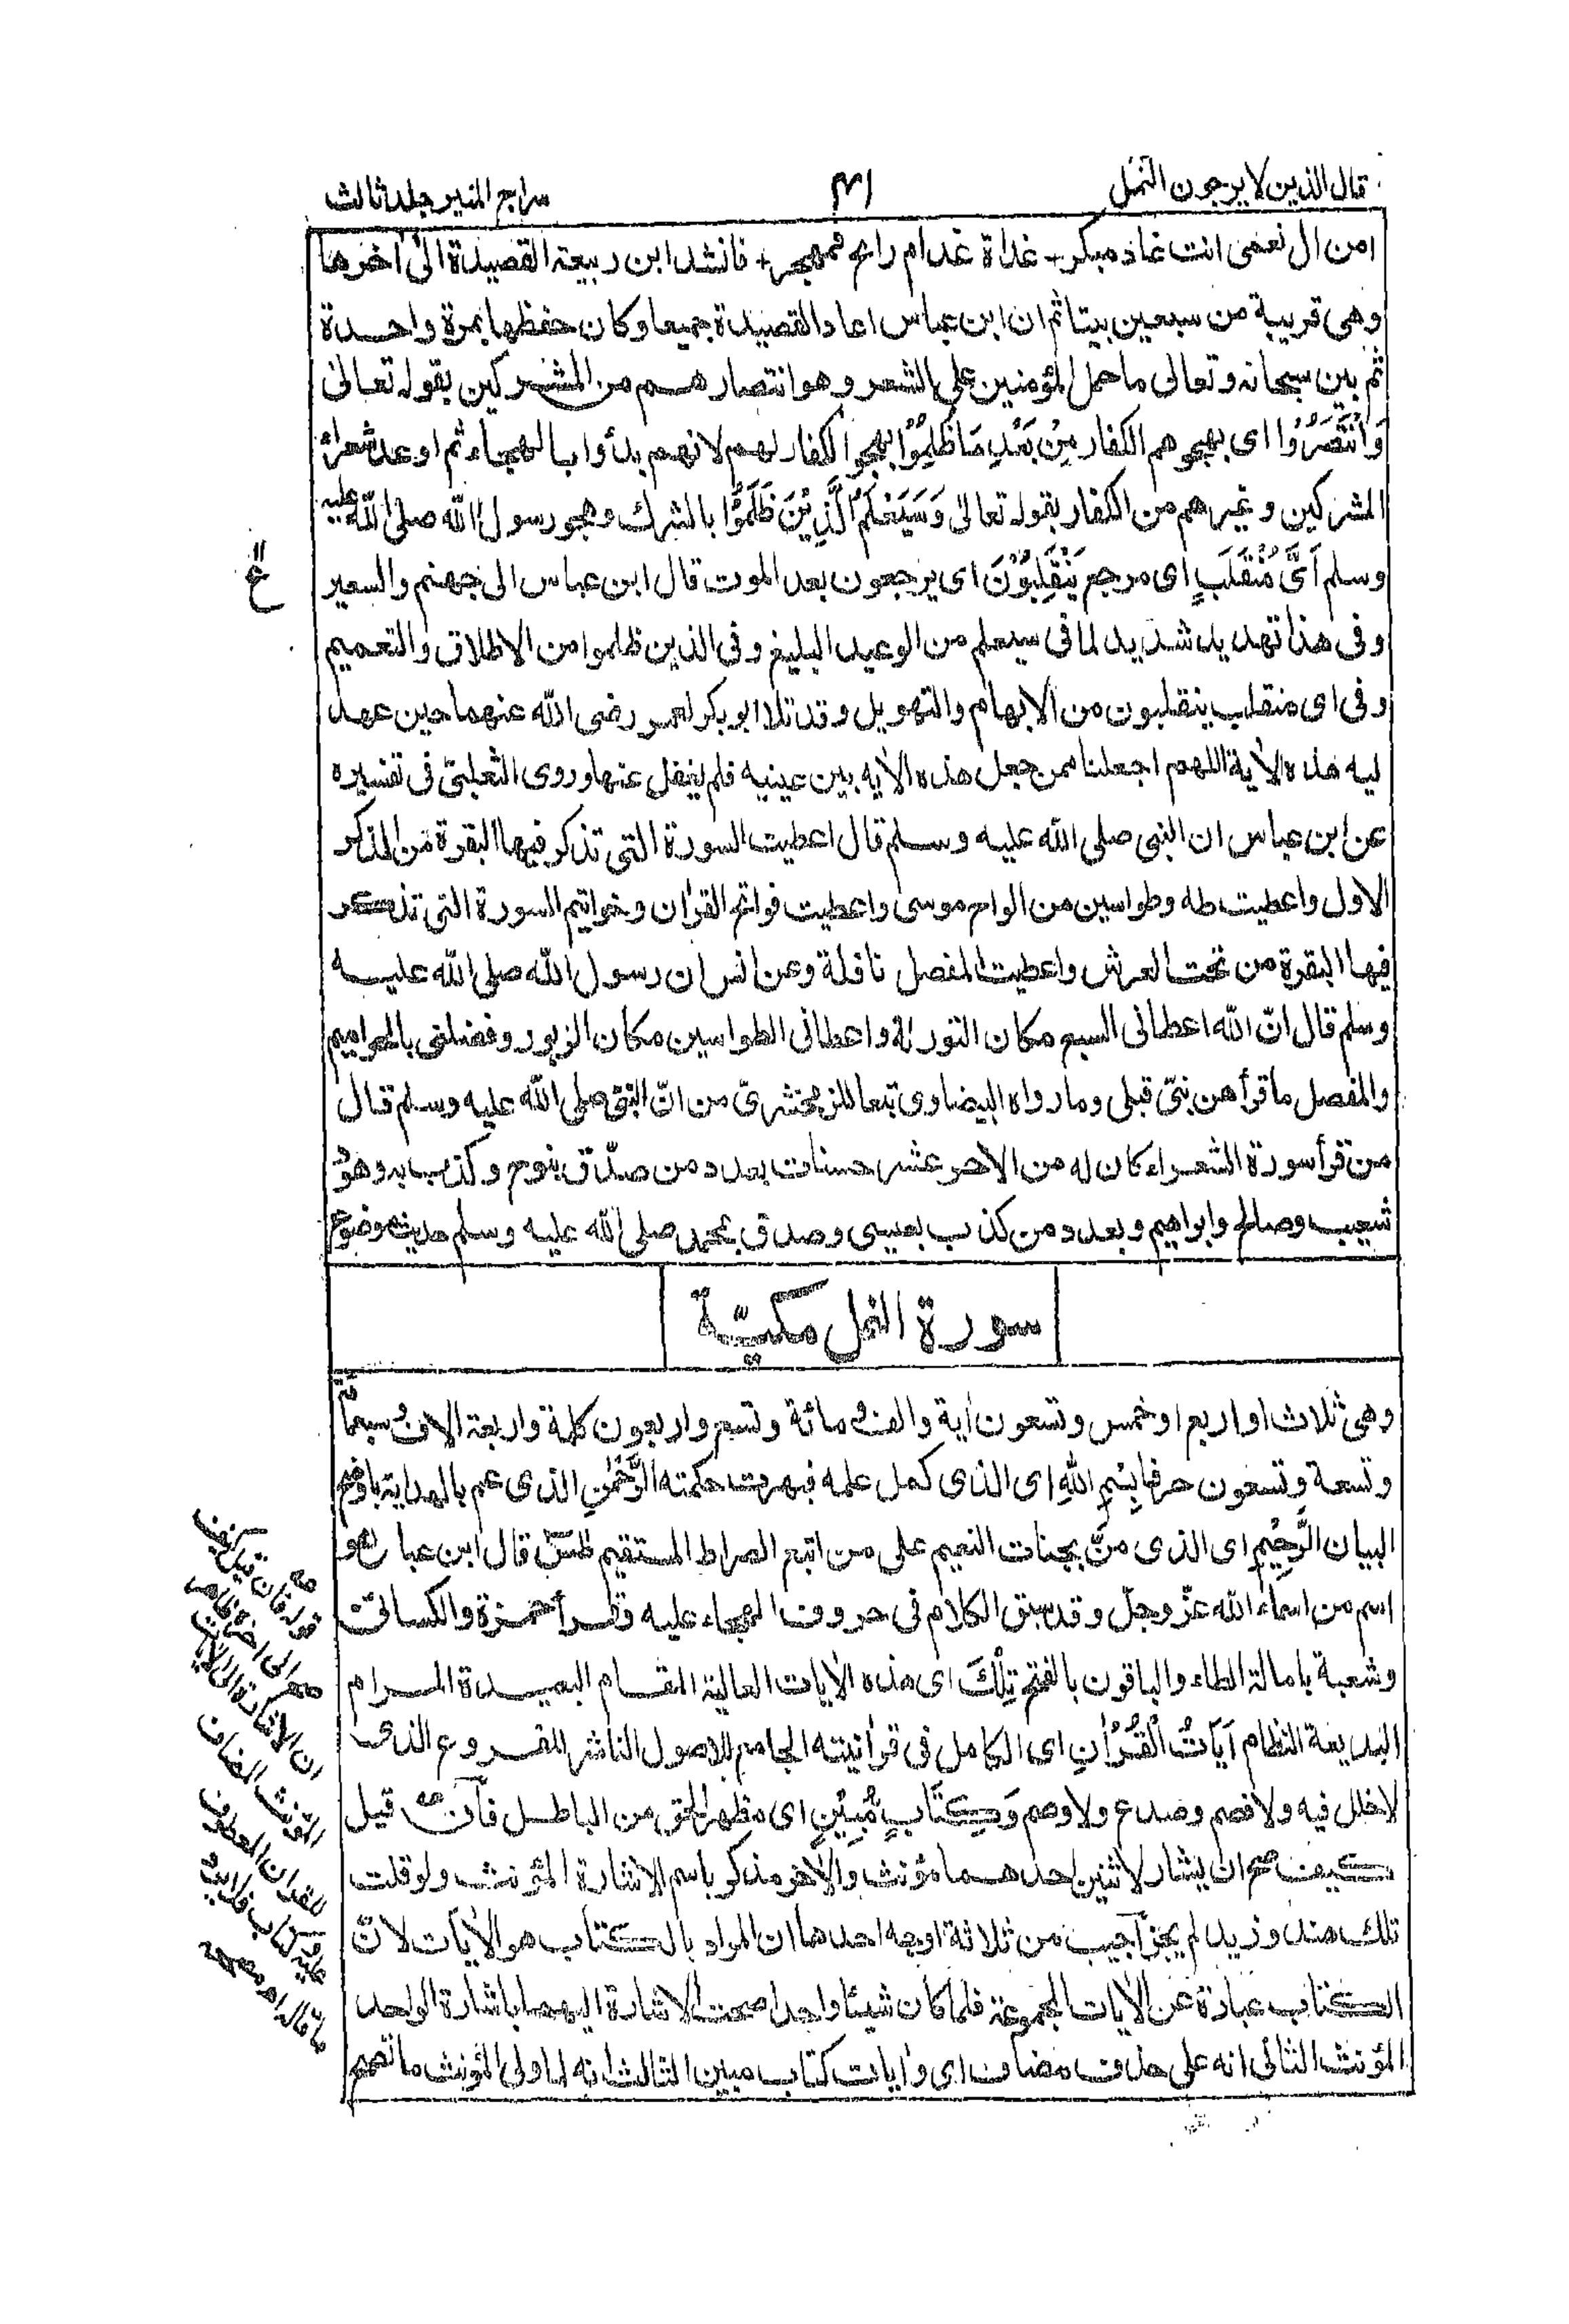 قال الذين لا يرجون النمل
سراج المنير جلد ثالث
امن ال نعمى انت غاد مبكر + غداة غدام رائح فمهجر + فانشد ابن ربيعة القصيدة الى اخرها
وهى قريبة من سبعين بيتا ثم ان ابن عباس اعاد القصيدة جميعا وكان حفظها بمرة واحدة
ثم بين سبحانه وتعالى ما حمل المؤمنين على الشعر وهو انتصارهم من المشركين بقوله تعالى
وَانْتَصَرُوْا اى بهجوهم الكفار مِنْ بَعْدِ مَا ظُلِمُوْا بهجوا الكفار لهم لانهم بدأوا بالهجاء ثم اوعد شعراء
المشركين وغيرهم من الكفار بقوله تعالى وَسَيَعْلَمُ الَّذِيْنَ ظَلَمُوْا بالشرك وهجو رسول الله صلى الله عليه
وسلم اَيَّ مُنْقَلَبٍ اى مرجع يَنْقَلِبُوْنَ اى يرجعون بعد الموت قال ابن عباس الى جهنم والسعير
وفى هذا تهديد شديد لما فى سيعلم من الوعيد البليغ وفى الذين ظلموا من الاطلاق والتعميم
وفى اى منقلب ينقلبون من الابهام والتهويل وقد تلا ابو بكر لعمر رضى الله عنهما حين عهد
ليه هذه الاية اللهم اجعلنا ممن جعل هذه الايه بين عينيه فلم يغفل عنها وروى الثعلبى فى تفسيره
عن ابن عباس ان النبى صلى الله عليه وسلم قال اعطيت السورة التى تذكر فيها البقرة من الذكر
الاول واعطيت طه وطواسين من الواح موسى واعطيت فواتح القران وخواتيم السورة التى تذكر
فيها البقرة من تحت العرش واعطيت المفصل نافلة وعن انس ان رسول الله صلى الله عليه
وسلم قال انّ الله اعطانى السبع مكان التورالة واعطانى الطواسين مكان الزبور وفضلنى بالحواميم
والمفصل ما قرأهن نبىّ قبلى وما رواه البيضاوى تبعا للزمخشرىّ من انّ النبىّ صلى الله عليه وسلم قال
من قرأ سورة الشعراء كان له من الاجر عشر حسنات بعدد من صدّق بنوح وكذب به وهود
شعيب وصالح وابراهيم وبعدد من كذب بعيسى وصدق بمحمد صلى الله عليه وسلم حديث موضوع
ع
سورة النمل مكيّة
وهى ثلاث او اربع او خمس وتسعون اٰية والف ومائة وتسع واربعون كلمة واربعة الاف وسبعمائة
وتسعة وتسعون حرفا بِسْمِ اللهِ اى الذى كمل علمه فبهرت حكمته الرَّحْمٰنِ الذى عم بالهداية باوضح
البيان الرَّحِيْمِ اى الذى منّ بجنات النعيم على من اتبع الصراط المستقيم طٰسٓ قال ابن عباس هو
اسم من اسماء الله عزّ وجلّ وقد سبق الكلام فى حروف الهجاء عليه وقرأ حمزة والكسائىّ
وشعبة بامالة الطاء والباقون بالفتح تِلْكَ اى هذه الاٰيات العالية المقام البعيدة المرام
البديعة النظام اٰيَاتُ الْقُرْاٰنِ اى الكامل فى قراٰنيته الجامع للاصول الناشر للفروع الذى
لا خلل فيه ولا فصم وصدع ولا وهم وَكِتَابٍ مُّبِيْنٍ اى مظهر الحق من الباطل فاَن قيل
كيف صح ان يشار لاثنين احدهما مؤنث والاٰخر مذكر باسم الاشارة المؤنث ولو قلت
تلك هند وزيد لم يجز اُجيب من ثلاثة اوجه احدها ان المراد بالكتاب هو الاٰيات لانّ
الكتاب عبارة عن الاٰيات المجموعة فلما كان شيئا واحدا صحت الاشارة اليهما باشارة الواحد
المؤنث الثانى انه على حذف مضاف اى واٰيات كتاب مبين الثالث انه لما ولى المؤنث ما تصح
قوله فان قيل كيف
صح الى اخره ظاهر
ان الاشارة الى الايات
المؤنث المضاف
للقران المعطوف
عليه كتاب